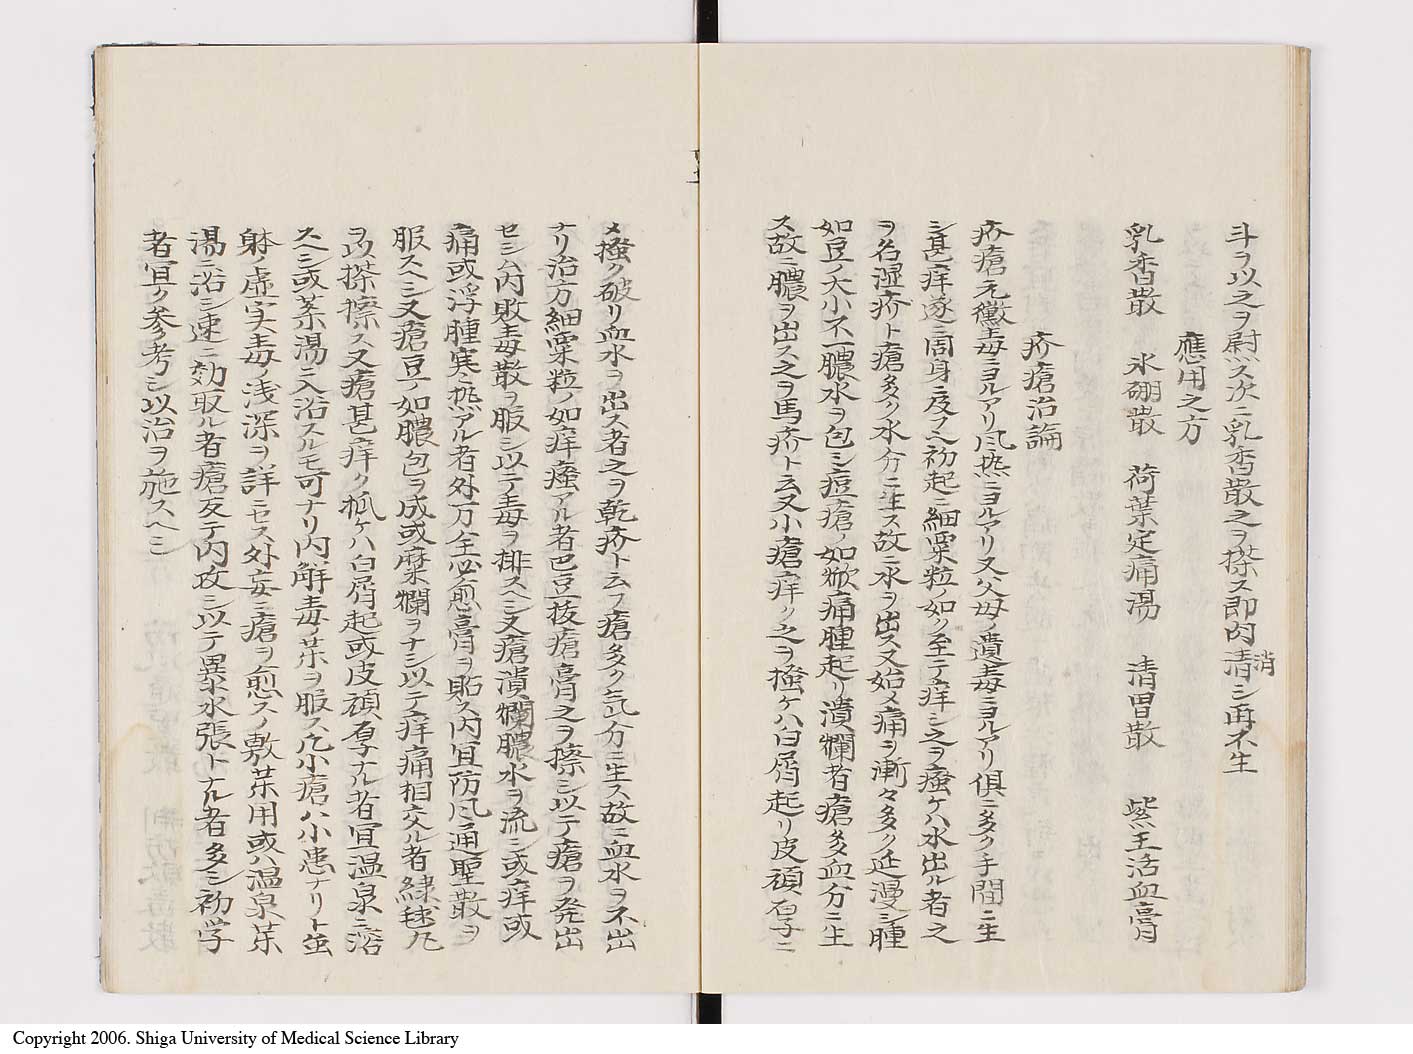 斗ヲ以之ヲ尉ス次ニ乳香散之ヲ搽ス即肉清シ再不生
消
應用之方
乳香散 氷硼散 荷葉定痛湯 清胃散 紫玉活血膏
疥瘡治論
疥瘡元黴毒ニヨルアリ風热ニヨルアリ又父母ノ遺毒ニヨルアリ俱ニ多ク手間ニ生
シ甚痒遂ニ周身ニ及フ初起ニ細粟粒ノ如ク至テ痒シ之ヲ瘙ケハ水出ル者之
ヲ名湿疥ト瘡多ク水分ニ生ス故ニ水ヲ出ス又始メ痛ヲ漸々多ク延漫シ腫
如豆ノ大小不一膿水ヲ包シ痘瘡ノ如焮痛腫起リ潰爛者瘡多血分ニ生
ス故ニ膿ヲ出ス之ヲ馬疥ト云又小瘡痒ク之ヲ搔ケハ白屑起リ皮頑厚子ニ
メ搔ク破リ血水ヲ出ス者之ヲ乾疥ト云フ瘡多ク気分ニ生ス故ニ血水ヲ不出
ナリ治方細粟粒ノ如痒瘙アル者巴豆抜瘡膏之ヲ擦シ以テ瘡ヲ発出
セシム内敗毒散ヲ服シ以テ毒ヲ排スヘシ又瘡潰爛膿水ヲ流シ或痒或
痛或浮腫寒热アル者外万全必愈膏ヲ貼ス内宜防風通聖散ヲ
服スヘシ又瘡豆ノ如膿包ヲ成或糜爛ヲナシ以テ痒痛相交ル者緑毬丸
ヲ以搽擦ス又瘡甚痒ク抓ケハ白屑起或皮頑厚ナル者宜温泉ニ浴
スヘシ或薬湯ニ入浴スルモ可ナリ内解毒ノ薬ヲ服ス凢小瘡ハ小患ナリト虽
躰ノ虚実毒ノ浅深ヲ詳ニセス外妄ニ瘡ヲ愈スノ敷薬用或ハ温泉薬
湯ニ浴シ速ニ効取ル者瘡反テ内攻シ以テ異水張トナル者多シ初学
者宜ク参考シ以治ヲ施スヘシ
Copyright 2006. Shiga University of Medical Science Library